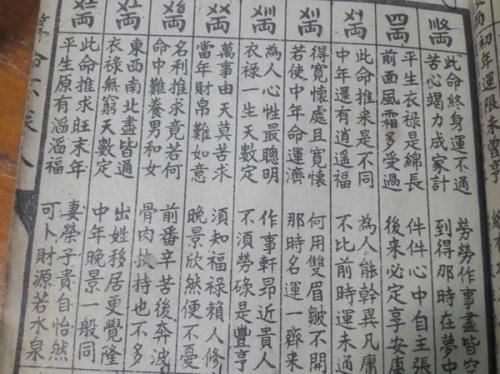 局初年運限未曾亨
此命終身運不通
勞勞作事盡皆空
苦心竭力成家計
到得那時在夢中
四両
平生衣禄是綿長
件件心中自主張
前面風霜多受過
後来必定享安康
此命推来是不同
為人能幹異凡庸
中年還有逍遥福
不比前時運未通
得寛懷處且寛懷
何用雙眉皺不開
若使中年命運濟
那時名運一齊来
為人心性最聰明
作事軒昂近貴人
衣禄一生天數定
不須勞碌是豐亨
萬事由天莫苦求
須知福禄賴人修
當年財帛難如意
晚景欣然便不憂
名利推求竟若何
前番辛苦後奔波
命中難養男和女
骨肉扶持也不多
東西南北盡皆通
出姓移居更覺隆
衣禄無窮天數定
中年晚景一般同
此命推求旺末年
妻榮子貴自怡然
平生原有滔滔福
可卜財源若水泉